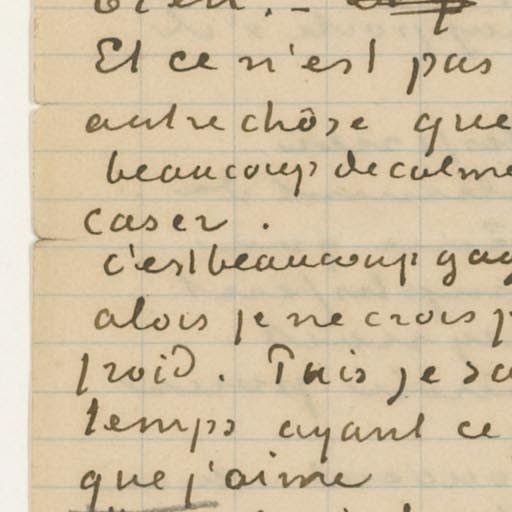 Et ce n'est pas
autre chôse que
beaucoup de calme
caser.
c'est beaucoup
alors je ne crois
froid. Puis je
temps ayant ce
que j'aime